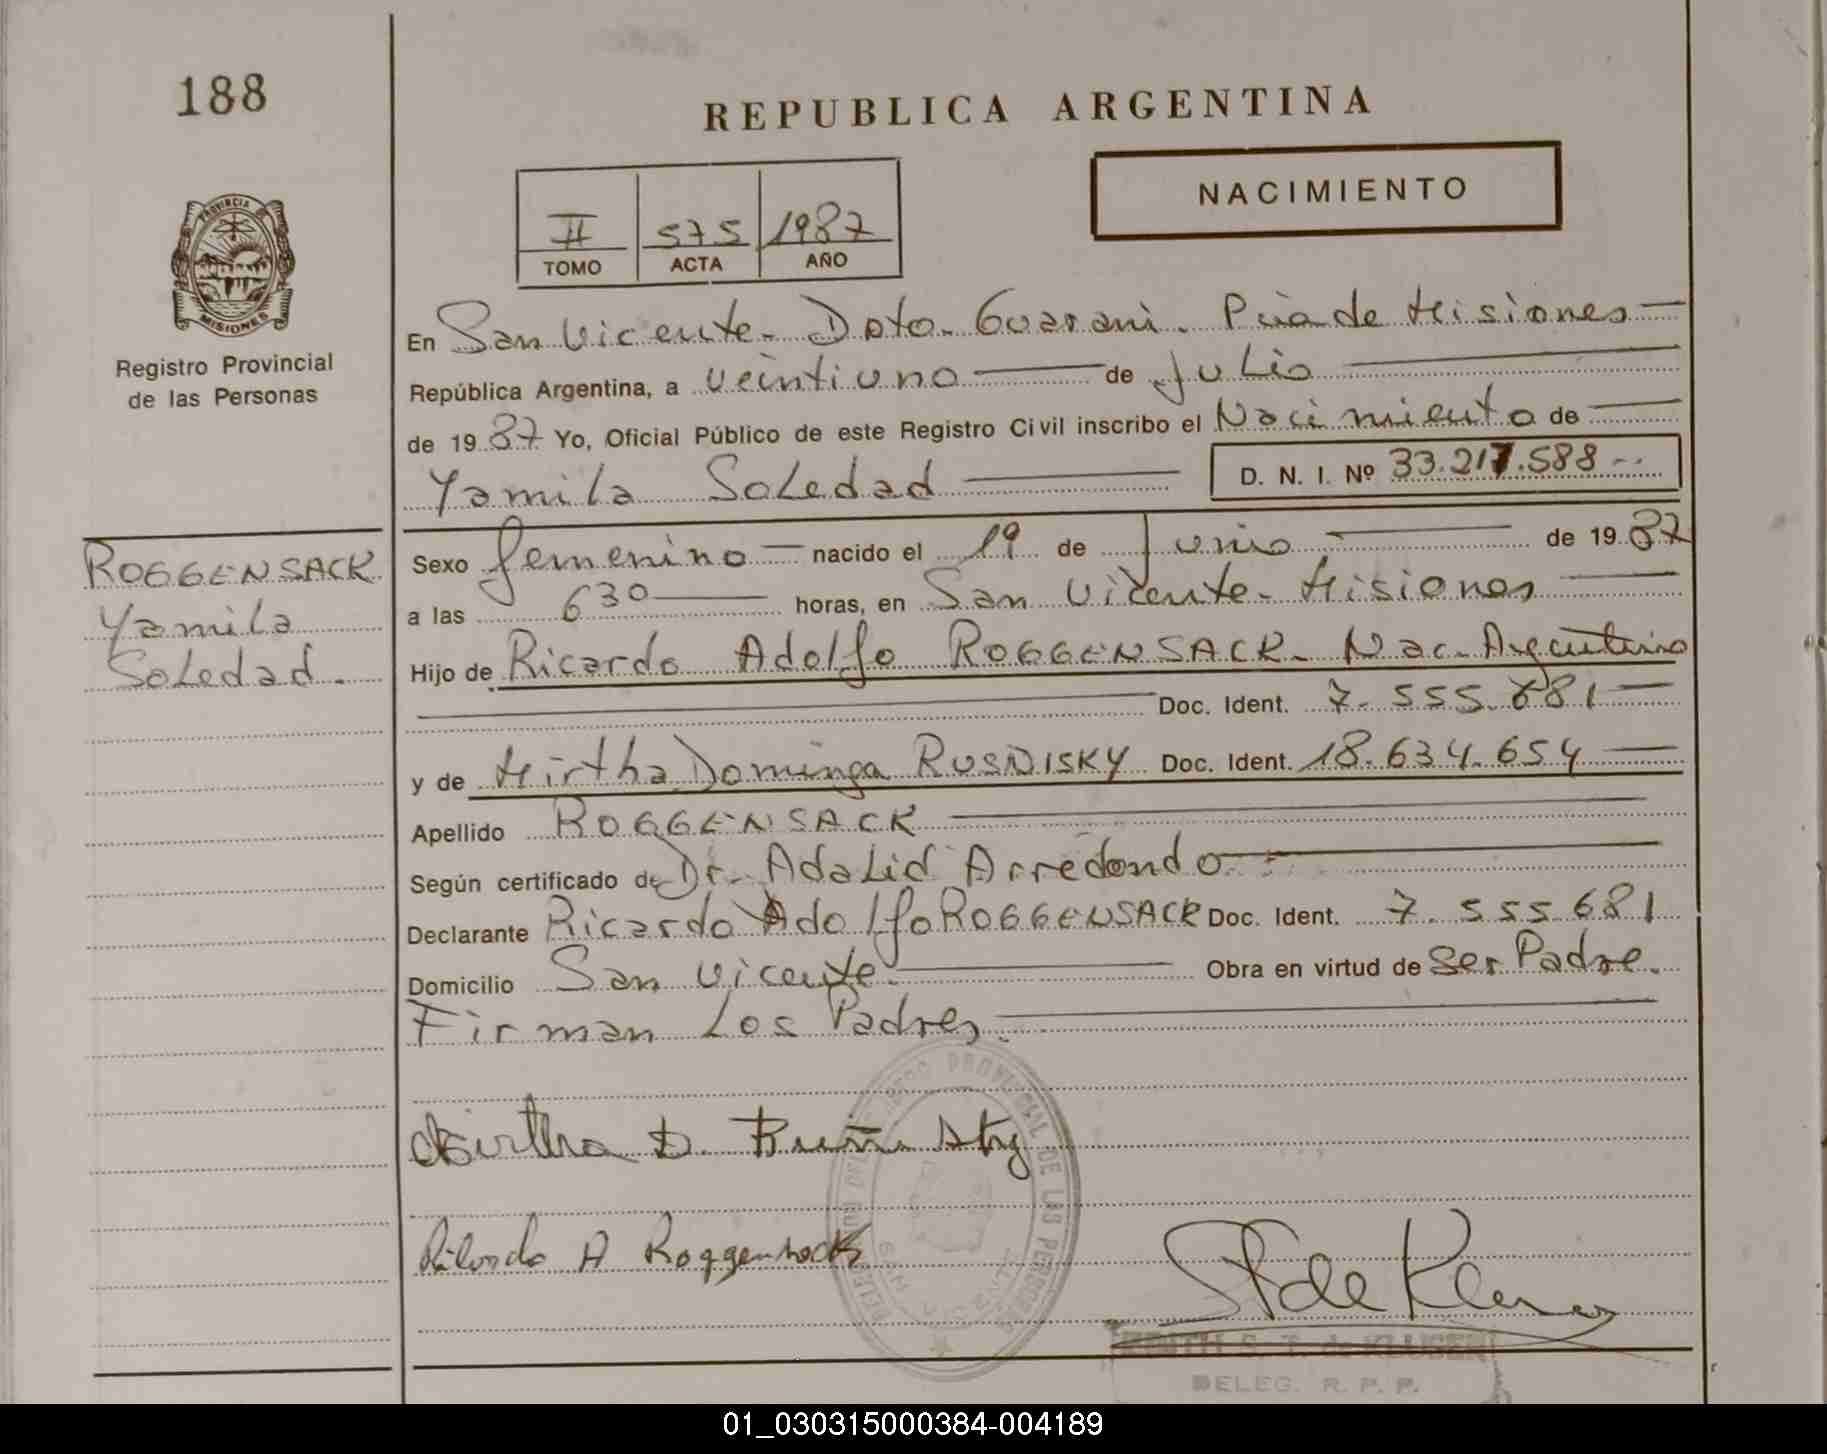 188
REPUBLICA ARGENTINA
NACIMIENTO
II 575 1987
TOMO ACTA AÑO
PROVINCIA DE
MISIONES
Registro Provincial
de las Personas
En San Vicente. Dpto. Guarani. Pcia de Misiones
República Argentina, a veintiuno de Julio
de 1987 Yo, Oficial Público de este Registro Civil inscribo el Nacimiento de
Yamila Soledad D. N. I. Nº 33.217.588
ROGGENSACK
Yamila
Soledad.
Sexo femenino nacido el 19 de Junio de 1987
a las 6 30 horas, en San Vicente - Misiones
Hijo de Ricardo Adolfo ROGGENSACK - Nac. Argentino
Doc. Ident. 7.555.681
y de Mirtha Dominga Doc. Ident. 18.634.654
Apellido ROGGENSACK
Según certificado de Dr. Adalid Arredondo
Declarante Ricardo Adolfo ROGGENSACK Doc. Ident. 7.555.681
Domicilio San Vicente Obra en virtud de Ser Padre.
Firman Los Padres.
Mirtha D.
Ricardo A Roggensack
S T de Kluser
EDITH S. T. de KLUSER
DELEG. R. P. P.
01_030315000384-004189